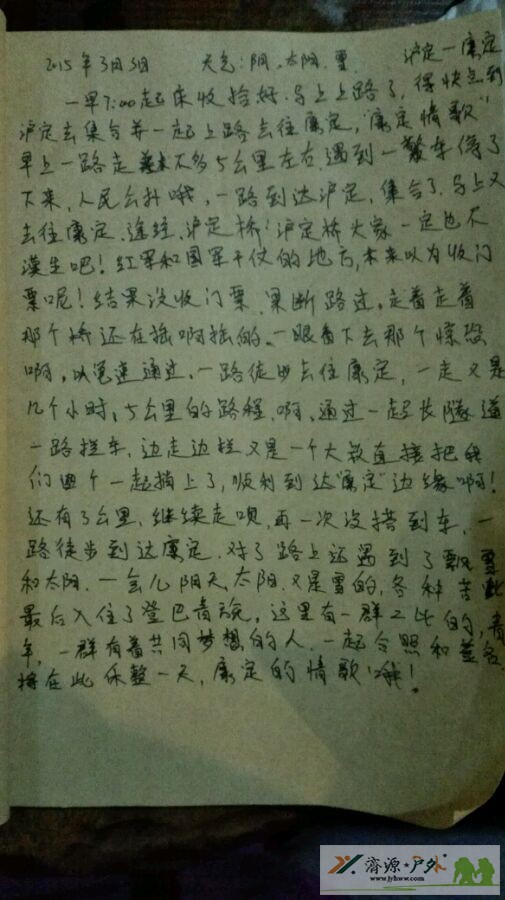 2015年3月3日 天气:阴、太阳、雪 泸定—康定
一早7:00起床收拾好.马上上路了,得快点到
泸定去集合并一起上路去往康定,"康定情歌"
早上一路走差不多5公里左右.遇到一警车停了
下来,人民公仆哦,一路到达泸定,集合了.马上又
去往康定.途经.泸定桥!泸定桥大家一定也不
漠生吧!红军和国军干仗的地方,本来以为收门
票呢!结果没收门票.果断路过,走着走着
那个桥还在摇啊摇的、一眼看下去那个惊恐
啊,以急速通过、一路徒步去往康定,一走又是
几个小时、5公里的路程.啊、通过一起长隧道
一路拦车,边走边拦又是一个大叔直接把我
们四个一起捎上了,顺利到达"康定"边缘啊!
还有了公里、继续走呗,再一次没搭到车,一
路徒步到达康定.对了路上还遇到了飘雪
和太阳.一会儿阴天,太阳.又是雪的,各种苦
最后入住了登巴青旅,这里有一群二比的,青
年,一群有着共同梦想的人.一起合照和签名
将在此休整一天,康定的情歌!哦!
济源·户外
www.jyhww.com